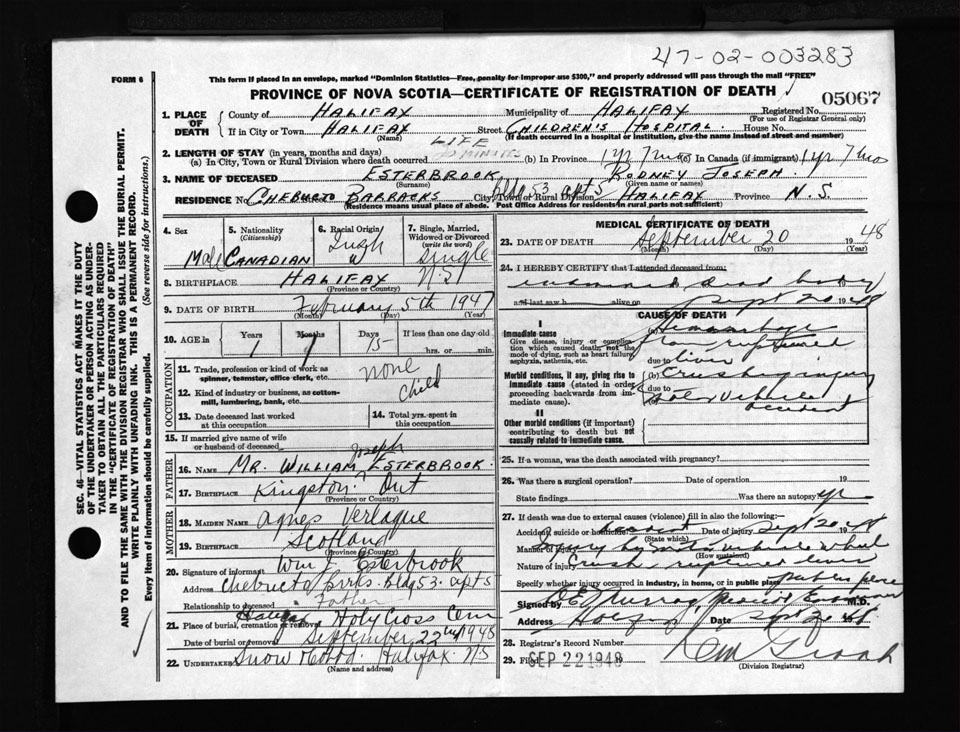 47-02-003283
FORM 6
This form if placed in an envelope, marked "Dominion Statistics—Free, penalty for improper use $300," and properly addressed will pass through the mail "FREE"
PROVINCE OF NOVA SCOTIA—CERTIFICATE OF REGISTRATION OF DEATH
05067
1. PLACE OF DEATH
County of HALIFAX Municipality of HALIFAX Registered No.
(For use of Registrar General only)
If in City or Town HALIFAX Street CHILDREN'S HOSPITAL. House No.
(Name) (If death occurred in a hospital or institution, give the name instead of street and number)
2. LENGTH OF STAY (in years, months and days) LIFE
(a) In City, Town or Rural Division where death occurred (b) In Province 1 yr 7 mos (c) In Canada (if immigrant) 1 yr 7 mo
3. NAME OF DECEASED ESTERBROOK RODNEY JOSEPH.
(Surname) (Given name or names)
RESIDENCE No. CHEBUCTO BARRACKS Bldg 53 apt 5 City, Town or Rural Division HALIFAX Province N.S.
(Residence means usual place of abode. Post Office Address for residents in rural parts not sufficient)
4. Sex Male
5. Nationality (Citizenship) CANADIAN
6. Racial Origin W
7. Single, Married, Widowed or Divorced (write the word) Single
8. BIRTHPLACE HALIFAX N.S.
(Province or Country)
9. DATE OF BIRTH February 5th 1947
(Month) (Day) (Year)
10. AGE in Years Months Days If less than one day old
1 7 15 hrs. or min.
OCCUPATION
11. Trade, profession or kind of work as spinner, teamster, office clerk, etc. none
12. Kind of industry or business, as cotton-mill, lumbering, bank, etc. Child
13. Date deceased last worked at this occupation
14. Total yrs. spent in this occupation
15. If married give name of wife or husband of deceased
FATHER
16. NAME MR. WILLIAM Joseph ESTERBROOK.
17. BIRTHPLACE Kingston Ont
(Province or Country)
MOTHER
18. MAIDEN NAME Agnes Verlaque
19. BIRTHPLACE Scotland
(Province or Country)
20. Signature of informant Wm J. Esterbrook
Address Chebucto Brks. Bldg 53. apt 5
Relationship to deceased Father
21. Place of burial, cremation or removal Halifax Holy Cross Cem
Date of burial or removal September 22nd 1948
22. UNDERTAKER Snow & Co Ltd. Halifax. N.S
(Name and Address)
MEDICAL CERTIFICATE OF DEATH
23. DATE OF DEATH September 20 1948
(Month) (Day) (Year)
24. I HEREBY CERTIFY that I attended deceased from:
examined dead body
and last saw h alive on Sept 20 1948
CAUSE OF DEATH
I
Immediate cause
Give disease, injury or complication which caused death, not the mode of dying, such as heart failure, asphyxia, asthenia, etc.
(a) Hemorrhage from ruptured
due to liver
Morbid conditions, if any, giving rise to immediate cause (stated in order proceeding backwards from immediate cause).
(b) Crushing injury
due to
(c) Motor Vehicle accident
II
Other morbid conditions (if important) contributing to death but not causally related to immediate cause.
25. If a woman, was the death associated with pregnancy?
26. Was there a surgical operation? Date of operation 19
State findings Was there an autopsy
27. If death was due to external causes (violence) fill in also the following:
Accident, suicide or homicide? Accident Date of injury Sept 20 1948
(State which)
Manner of injury by motor vehicle wheel
(How sustained)
Nature of injury Crush, ruptured liver
Specify whether injury occurred in industry, in home, or in public place public place
Signed by M.D.
Address Halifax Date Sept 20 1948
28. Registrar's Record Number
29. Filed SEP 22 1948
(Division Registrar)
SEC. 46—VITAL STATISTICS ACT MAKES IT THE DUTY OF THE UNDERTAKER OR PERSON ACTING AS UNDERTAKER TO OBTAIN ALL THE PARTICULARS REQUIRED IN THE "CERTIFICATE OF REGISTRATION OF DEATH" AND TO FILE THE SAME WITH THE DIVISION REGISTRAR WHO SHALL ISSUE THE BURIAL PERMIT.
WRITE PLAINLY WITH UNFADING INK. THIS IS A PERMANENT RECORD.
Every item of information should be carefully supplied. (See reverse side for instructions.)